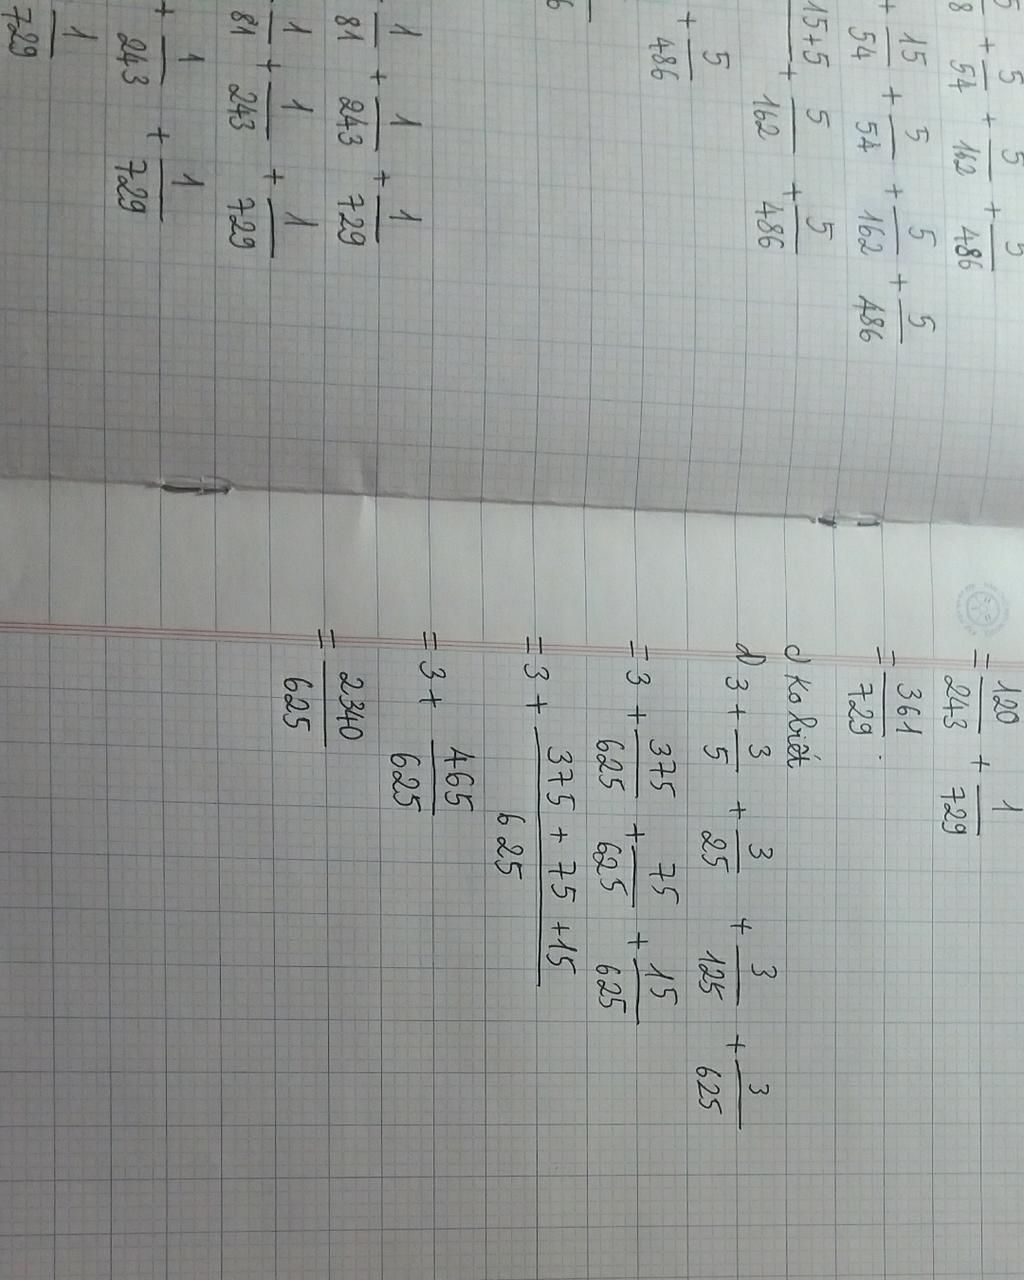 5/8 + 5/54 + 5/162 + 5/486
+ 15/54 + 5/54 + 5/162 + 5/486
15+5 + 5/162 + 5/486
+ 5/486
6
1/81 + 1/243 + 1/729
1/81 + 1/243 + 1/729
+ 1/243 + 1/729
1/729
= 120/243 + 1/729
= 361/729.
c) Ko biết
d) 3 + 3/5 + 3/25 + 3/125 + 3/625
= 3 + 375/625 + 75/625 + 15/625
= 3 + (375 + 75 + 15)/625
= 3 + 465/625
= 2340/625